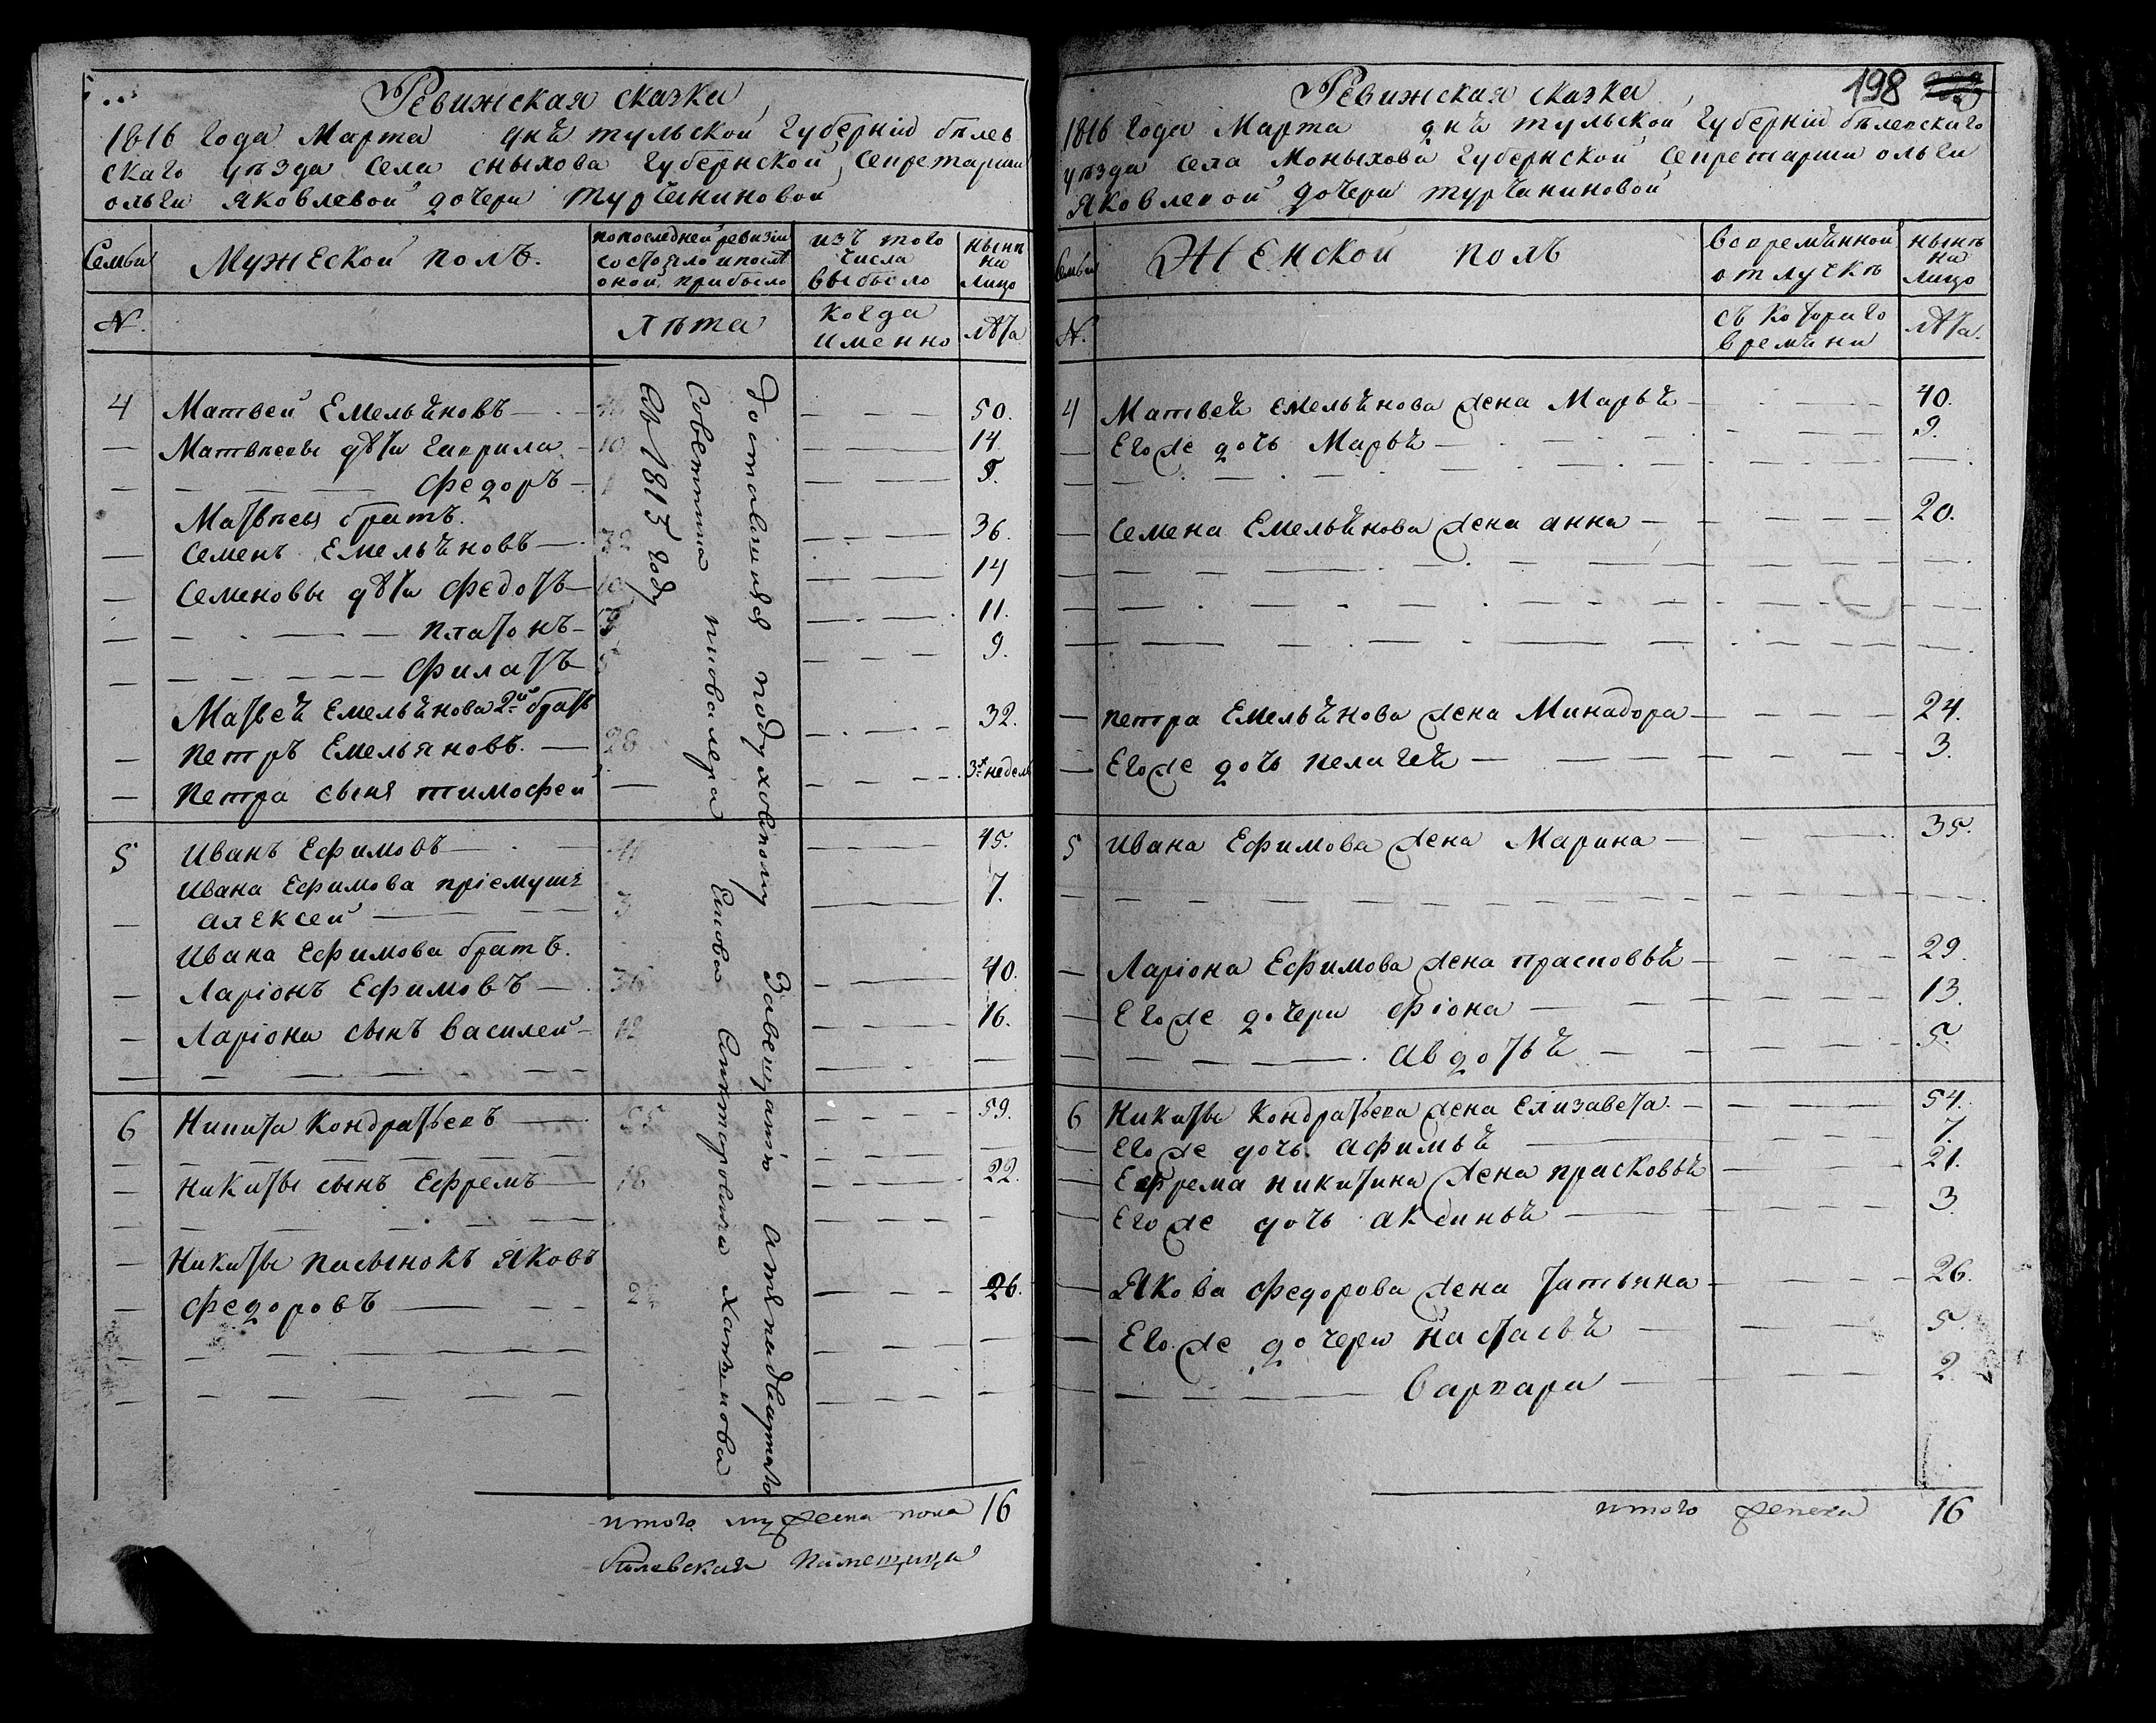 Ревижская сказка
1816 года Марта днѣ тульской губерній бѣлев
скаго уѣзда села сныхова губернской секретарши
ольги яковлевой дочери турчениновой
Семьи
Мужеской полъ.
попоследней ревизіи
состояло ипосле
оной прибыло
изъ того
числа
выбыло
нынѣ
на
лицо
№.
лѣта
когда
именно
лѣта
4 Матвей Емельяновъ 50.
Матвѣевы дѣти гаврила 10 14
Федоръ 1 5.
Матвѣевъ братъ.
Семенъ Емельяновъ 32 36.
Семеновы дѣти Федотъ 10 14
платонъ 11.
Филатъ 5 9.
Матвея Емельянова 2й братъ
петръ Емельяновъ. 28 32.
петра сынъ тимофеи 3х недель
5 Иванъ Ефимовъ 41 45.
Ивана Ефимова пріемушъ
алексей 3 7.
Ивана Ефимова братъ.
Ларіонъ Ефимовъ 36 40.
Ларіона сынъ василей 12 16.
6 Никита Кондратьевъ 55 59.
Никиты сынъ Ефремъ 18 22.
Никиты пасынокъ яковъ
федоровъ 22 26.
достався подуховному Завещатію
Советника икавалера
Св 1813 году
итого мужеска пола 16
бѣлевская памещица
198
Ревижская сказка
1816 года Марта днѣ тульской губерній бѣлевскаго
уѣзда села Моныхова губернской секретарши ольги
яковлевой дочери турчаниновой
Семьи
Женской полъ
вовремянной
отлучкѣ
нынѣ
на
лицо
№.
съ котораго
времяни
лѣта.
4 Матвея емельянова жена Марья 40.
Егоже дочь Марья 9.
Семена Емельянова жена анна 20.
петра Емельянова жена Минадора 24.
Егоже дочь пелагея 3.
5 Ивана Ефимова жена Марина 35.
Ларіона Ефимова жена прасковья 29.
Егоже дочери фіона 13.
авдотья 5.
6 Никиты Кондратьева жена Елизавета. 54.
Егоже дочь афимья 7.
Ефрема никитина жена прасковья 21.
Егоже дочь аксинья 3.
Якова федорова жена татьяна 26.
Егоже дочери настасья 5.
варвара 2.
итого женска 16